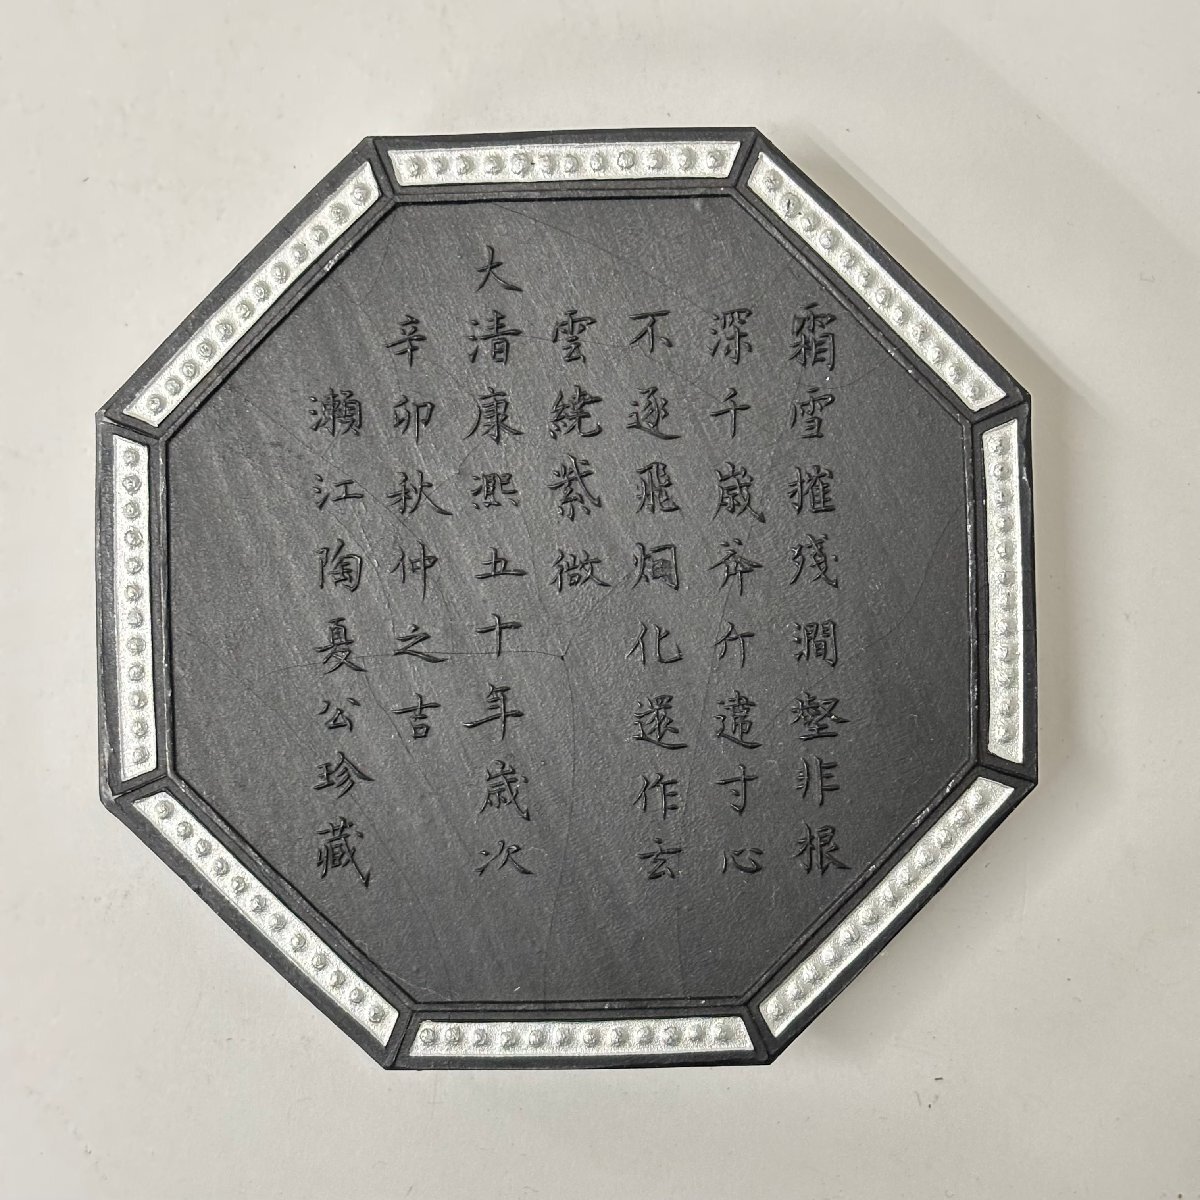 霜雪摧殘澗壑非根
深千歲斧斤違寸心
不逐飛烟化還作玄
雲繞紫微
大清康熙五十年歲次
辛卯秋仲之吉
瀨江陶憂公珍藏